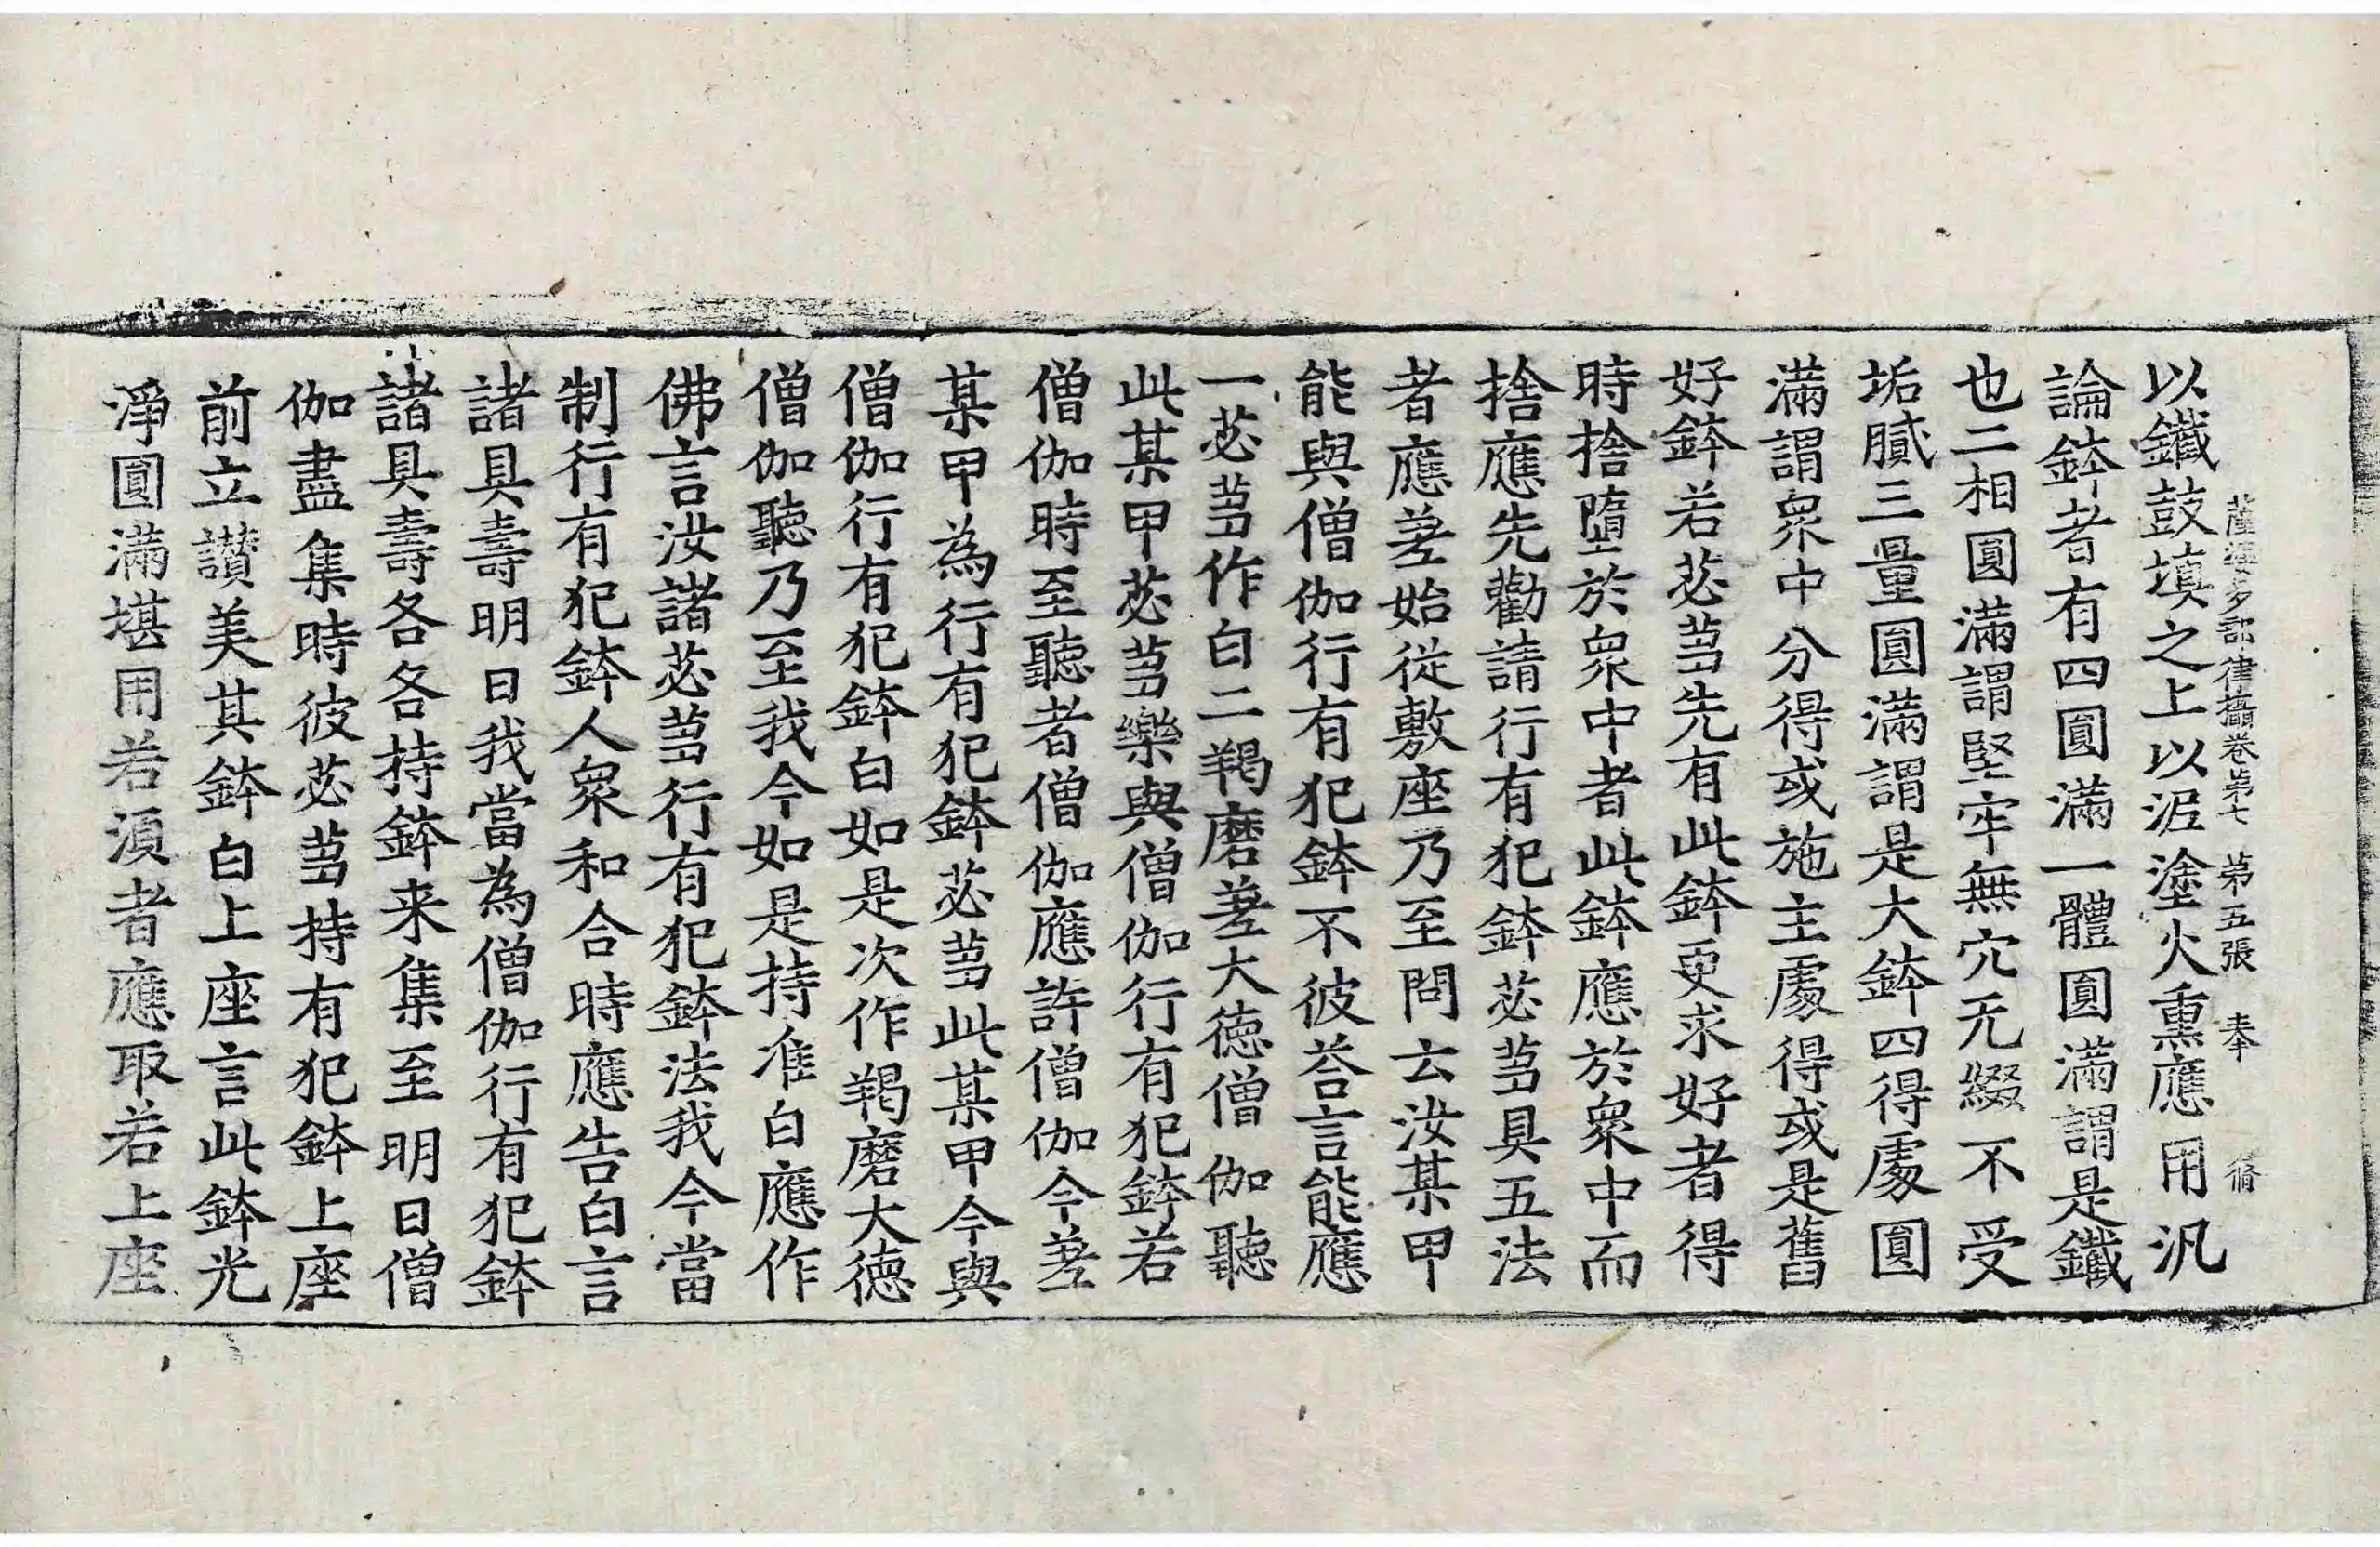 薩婆多部律攝卷第七 第五張 奉 脩
以鐵鼓填之上以泥塗火熏應用汎
論鉢者有四圓滿一體圓滿謂是鐵
也二相圓滿謂堅牢無穴无綴不受
垢膩三量圓滿謂是大鉢四得處圓
滿謂衆中分得或施主處得或是舊
好鉢若苾蒭先有此鉢更求好者得
時捨墮於衆中者此鉢應於衆中而
捨應先勸請行有犯鉢苾蒭具五法
者應差始從敷座乃至問云汝某甲
能與僧伽行有犯鉢不彼荅言能應
一苾蒭作白二羯磨差大德僧伽聽
此某甲苾蒭樂與僧伽行有犯鉢若
僧伽時至聽者僧伽應許僧伽今差
某甲為行有犯鉢苾蒭此某甲今與
僧伽行有犯鉢白如是次作羯磨大德
僧伽聽乃至我今如是持准白應作
佛言汝諸苾蒭行有犯鉢法我今當
制行有犯鉢人衆和合時應告白言
諸具壽明日我當為僧伽行有犯鉢
諸具壽各各持鉢来集至明日僧
伽盡集時彼苾蒭持有犯鉢上座
前立讃美其鉢白上座言此鉢光
淨圓滿堪用若湏者應取若上座